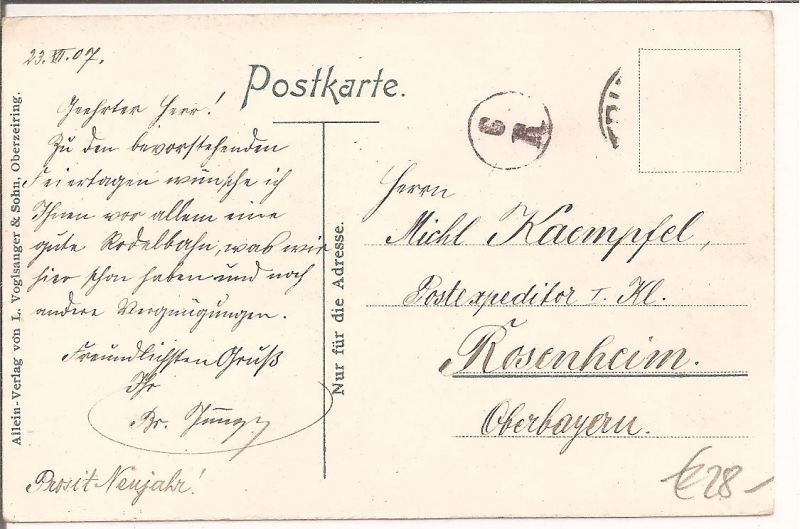 23. XII. 07.
Postkarte.
Geehrter Herr!
Zu den bevorstehenden
Feiertagen wünsche ich
Ihnen vor allem eine
gute Rodelbahn, was wir
hier schon haben und noch
andere Vergnügungen.
Freundlichsten Gruß
Ihr
Prosit Neujahr!
Allein-Verlag von L. Voglsanger & Sohn, Oberzeiring.
Nur für die Adresse.
6
R
Herrn
Michl Kaempfel,
Postexpeditor I. Kl.
Rosenheim.
Oberbayern.
€28-